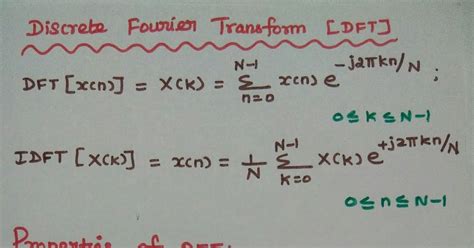 Discrete Fourier Transform [DFT]
DFT[x(n)] = X(k) = N-1 Σ n=0 x(n) e^-j2πkn/N ;
0 ≤ k ≤ N-1
IDFT [X(k)] = x(n) = 1/N N-1 Σ k=0 X(k) e^+j2πkn/N
0 ≤ n ≤ N-1